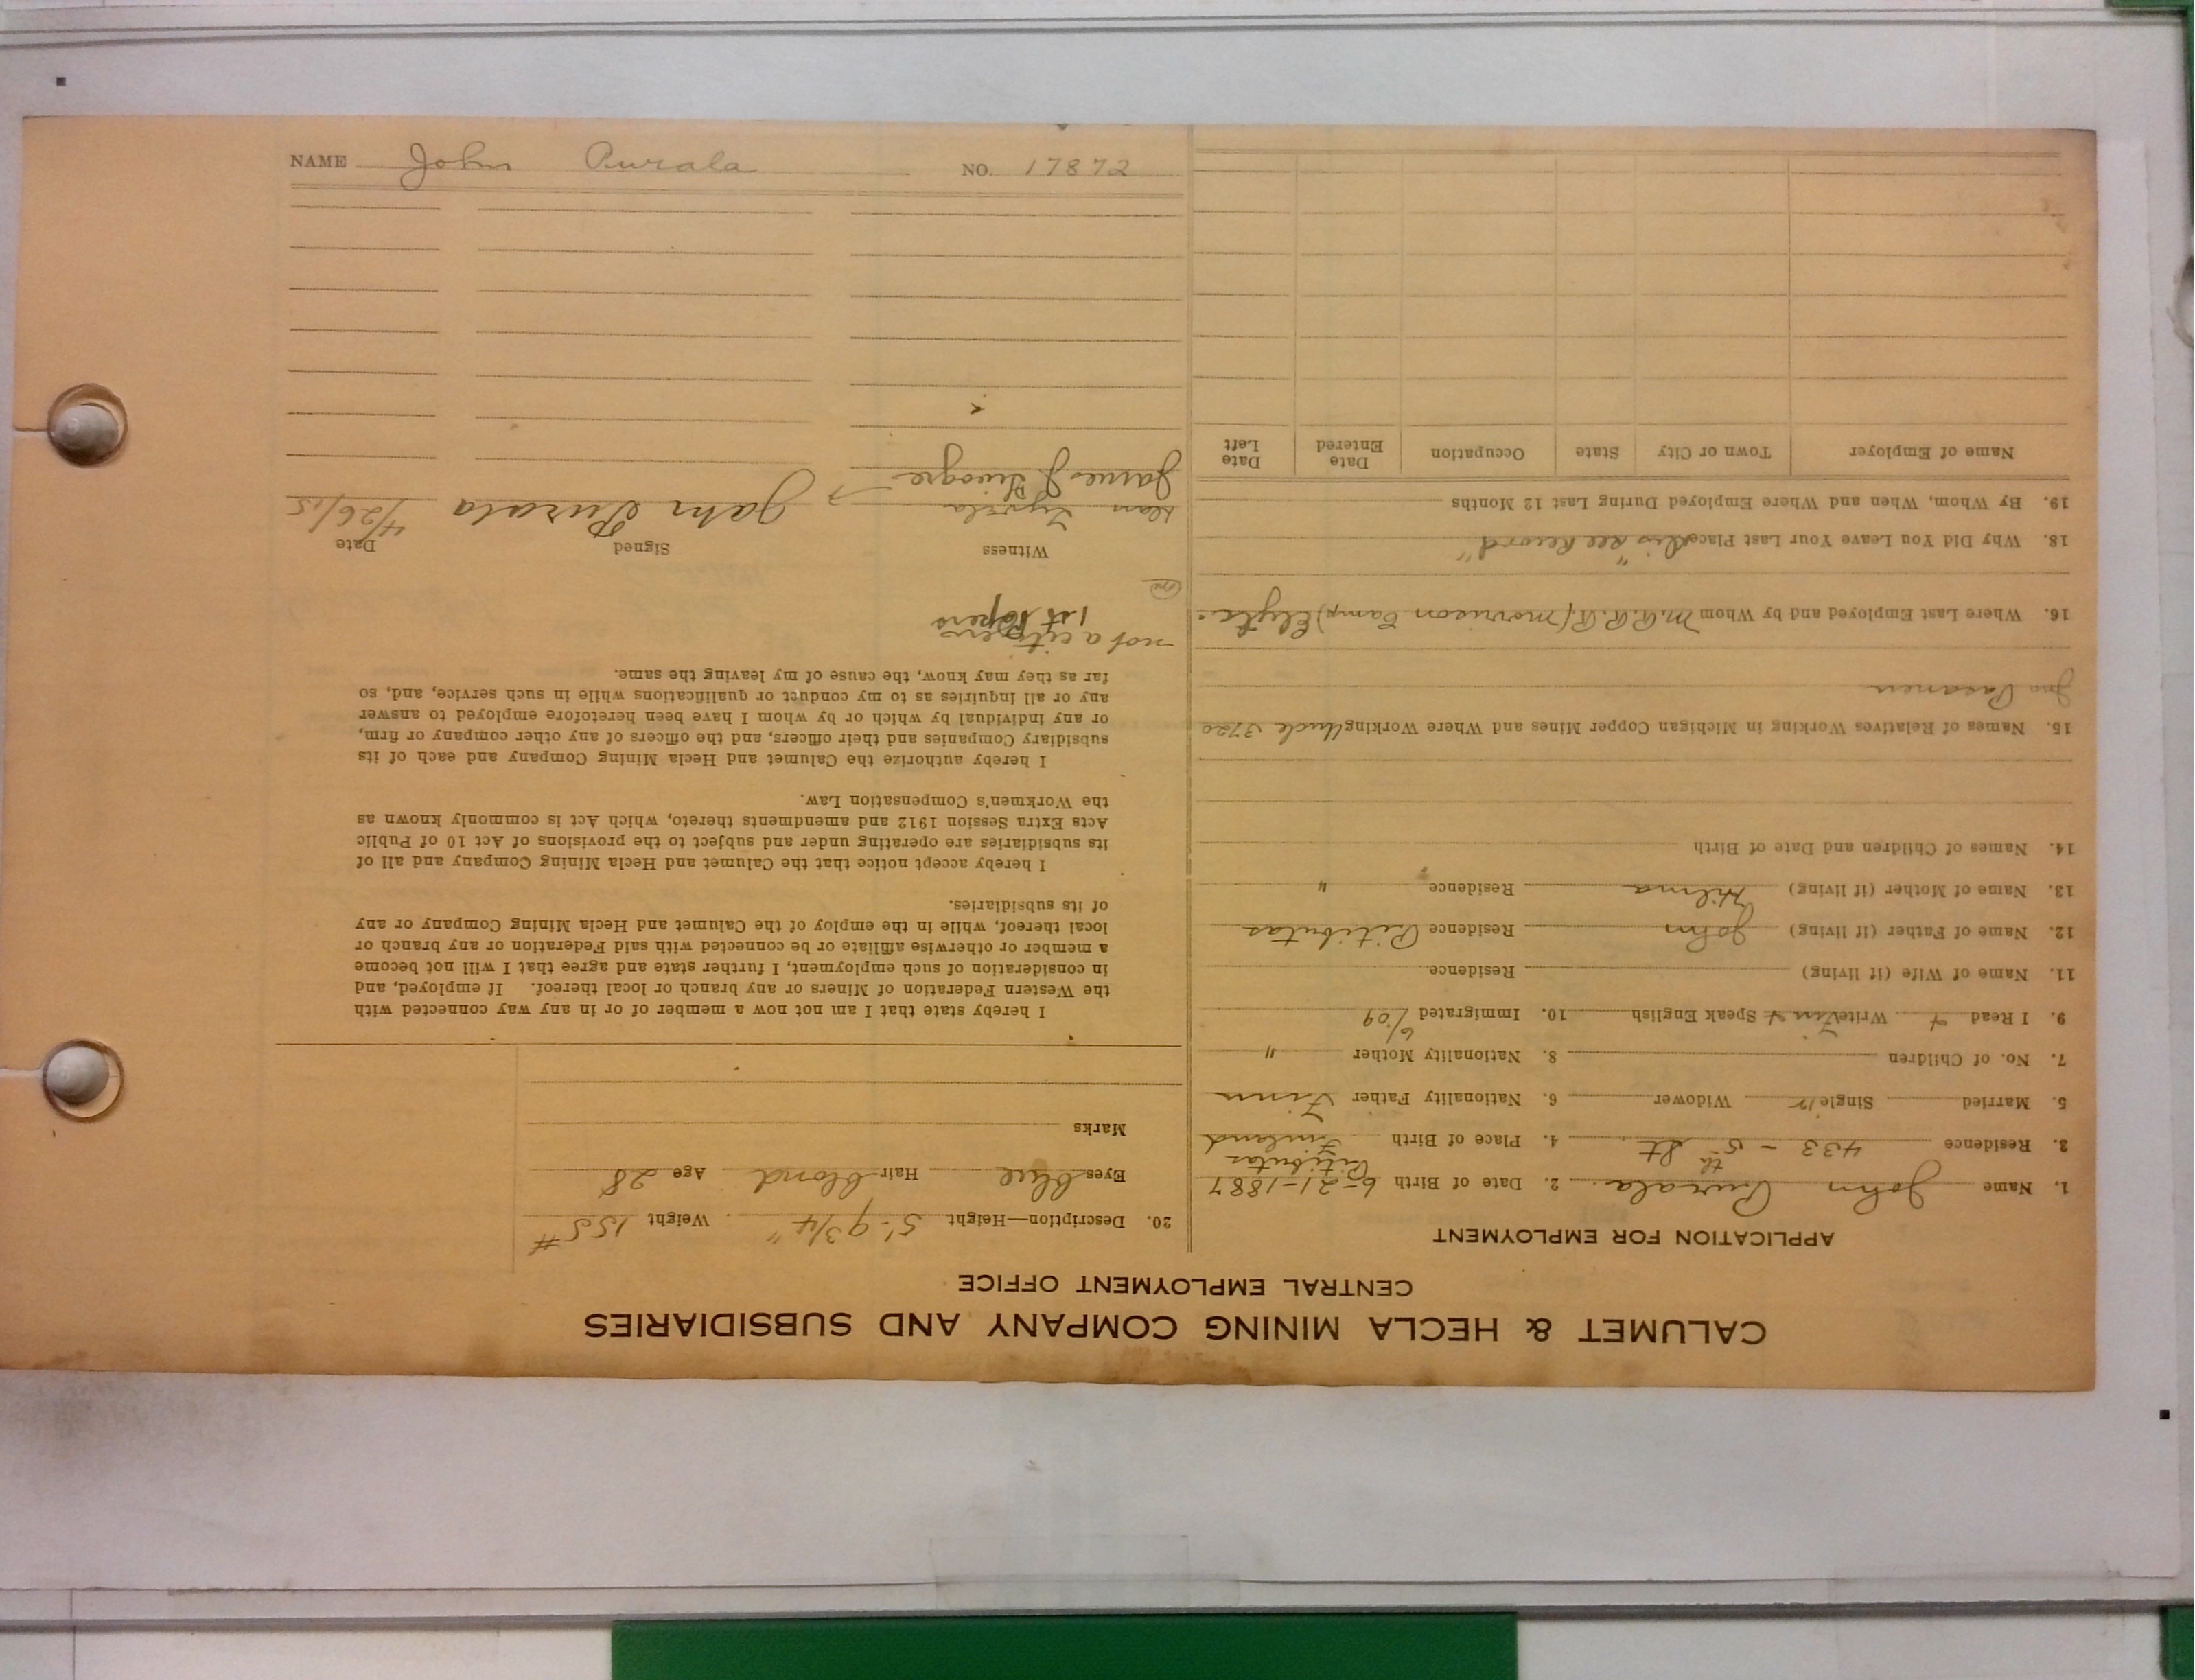 CALUMET & HECLA MINING COMPANY AND SUBSIDIARIES
CENTRAL EMPLOYMENT OFFICE
APPLICATION FOR EMPLOYMENT
1. Name John Purala 2. Date of Birth 6-21-1887
3. Residence 433 - 5th St. 4. Place of Birth Finland
5. Married Single Widower 6. Nationality Father Finn
7. No. of Children 8. Nationality Mother "
9. I Read Write Finn Speak English 10. Immigrated 6/09
11. Name of Wife (if living) Residence
12. Name of Father (if living) John Residence
13. Name of Mother (if living) Hilma Residence "
14. Names of Children and Date of Birth
15. Names of Relatives Working in Michigan Copper Mines and Where Working Uncle 3720
Jno
16. Where Last Employed and by Whom M.R.R.R. (Morrison Camp)
18. Why Did You Leave Your Last Place "see Record"
19. By Whom, When and Where Employed During Last 12 Months
Name of Employer Town or City State Occupation Date Entered Date Left
20. Description—Height 5'-9 3/4" Weight 155#
Eyes blue Hair blond Age 28
Marks
I hereby state that I am not now a member of or in any way connected with
the Western Federation of Miners or any branch or local thereof. If employed, and
in consideration of such employment, I further state and agree that I will not become
a member or otherwise affiliate or be connected with said Federation or any branch or
local thereof, while in the employ of the Calumet and Hecla Mining Company or any
of its subsidiaries.
I hereby accept notice that the Calumet and Hecla Mining Company and all of
its subsidiaries are operating under and subject to the provisions of Act 10 of Public
Acts Extra Session 1912 and amendments thereto, which Act is commonly known as
the Workmen's Compensation Law.
I hereby authorize the Calumet and Hecla Mining Company and each of its
subsidiary Companies and their officers, and the officers of any other company or firm,
or any individual by which or by whom I have been heretofore employed to answer
any or all inquiries as to my conduct or qualifications while in such service, and, so
far as they may know, the cause of my leaving the same.
not a citizen
1st Papers
Witness Signed Date
John Purala 4/26/15
James J.
NAME John Purala NO. 17872